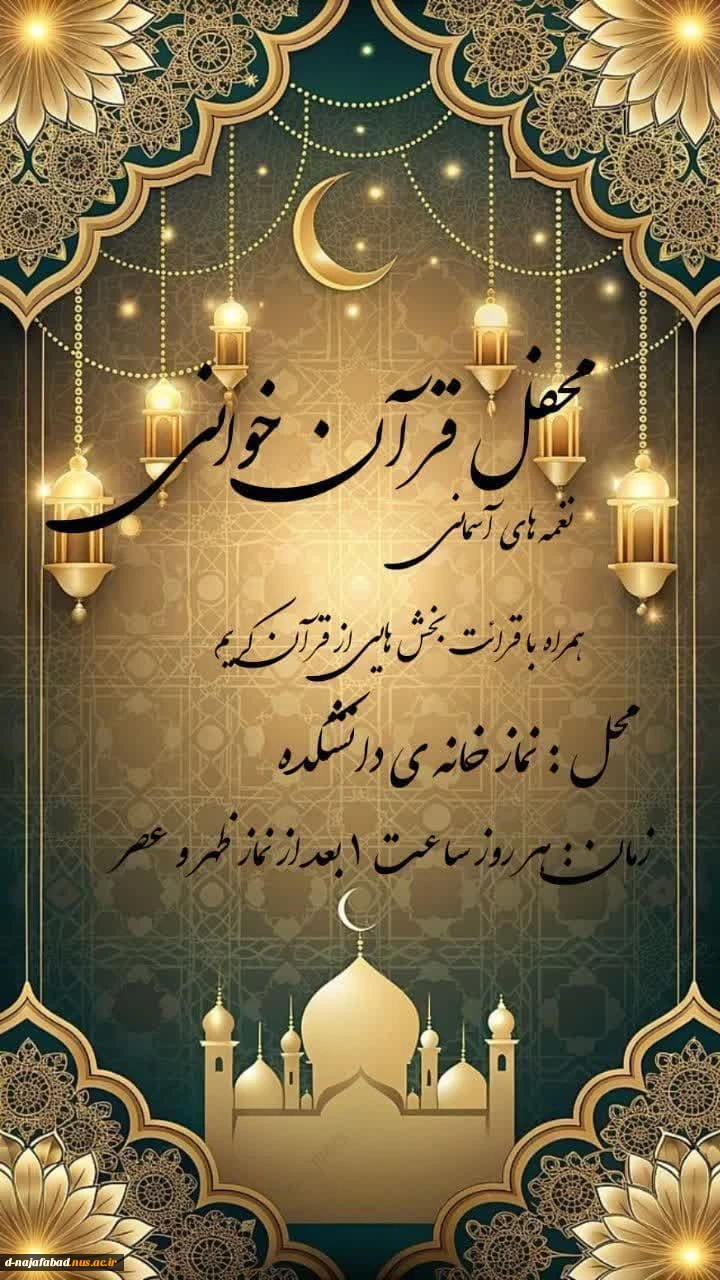 محفل قرآن خوانی
نغمه های آسمانی
همراه با قرائت بخش هایی از قرآن کریم
محل : نماز خانه ی دانشکده
زمان : هر روز ساعت ۱ بعد از نماز ظهر و عصر
d-najafabad.nus.ac.ir